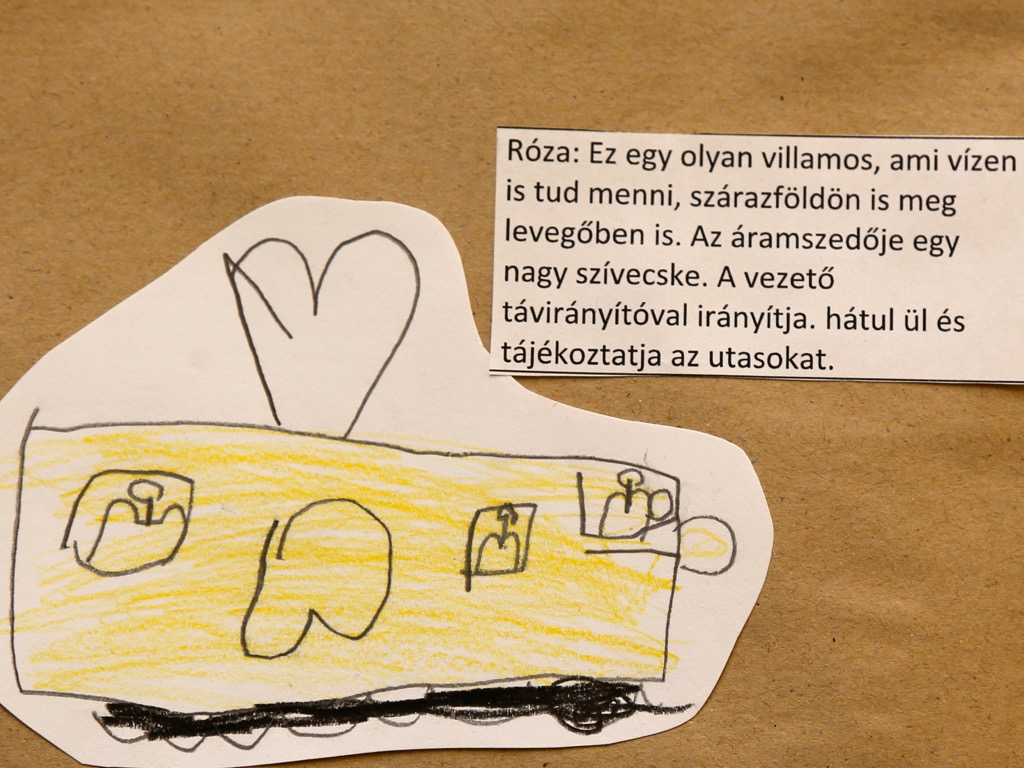 Róza: Ez egy olyan villamos, ami vízen
is tud menni, szárazföldön is meg
levegőben is. Az áramszedője egy
nagy szívecske. A vezető
távirányítóval irányítja. hátul ül és
tájékoztatja az utasokat.